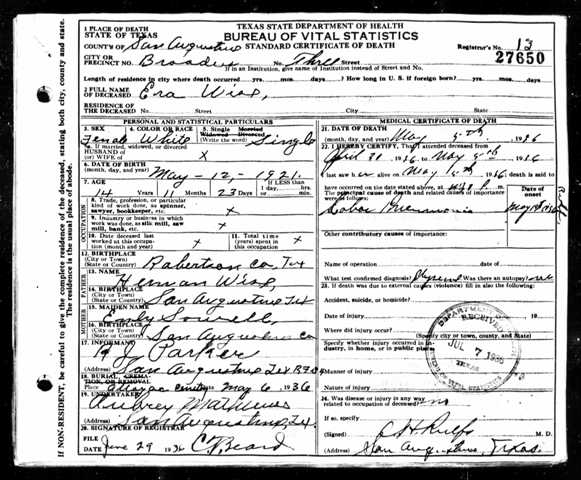 TEXAS STATE DEPARTMENT OF HEALTH
BUREAU OF VITAL STATISTICS
STANDARD CERTIFICATE OF DEATH
Registrar's No. 13
27650
1 PLACE OF DEATH
STATE OF TEXAS
COUNTY OF San Augustine
CITY OR PRECINCT NO. Broaddus No. Three Street
If in an Institution, give name of Institution instead of Street and No.
Length of residence in city where death occurred yrs. mos. days. How long in U. S. if foreign born? yrs. mos. days.
2 FULL NAME OF DECEASED Era Wise,
RESIDENCE OF THE DECEASED Street City State
PERSONAL AND STATISTICAL PARTICULARS
3. SEX Female
4. COLOR OR RACE White
5. Single Married Widowed Divorced (Write the word) Single
5a. If married, widowed, or divorced
HUSBAND OF
(or) WIFE OF x
6. DATE OF BIRTH
(month, day, and year) May-12,-1921.
7. AGE
14 Years 11 Months 23 Days
If LESS than 1 day
8. Trade, profession, or particular kind of work done, as spinner, sawyer, bookkeeper, etc. x
9. Industry or business in which work was done, as silk mill, saw mill, bank, etc. x
10. Date deceased last worked at this occupation (month and year) x
11. Total time (years) spent in this occupation x
OCCUPATION
12. BIRTHPLACE
(City or Town)
(State or Country) Robertson Co. Tex
FATHER
13. NAME Herman Wise,
14. BIRTHPLACE
(City or Town)
(State or Country) San Augustine Tex
MOTHER
15. MAIDEN NAME
16. BIRTHPLACE
(City or Town)
(State or Country) San Augustine Co
17. INFORMANT Parker
San Augustine Tex
18. BURIAL, CREMATION, OR REMOVAL
Place Date May 6, 1936
19. UNDERTAKER Aubrey Mathews
San Augustine, Tex.
20. SIGNATURE OF REGISTRAR
FILE June 29 1936 Beard
MEDICAL CERTIFICATE OF DEATH
21. DATE OF DEATH
(month, day, and year) May 5th, 1936
22. I HEREBY CERTIFY, That I attended deceased from
1936 to May 5th 1936
I last saw er alive on May 5th, 1936 death is said to
have occurred on the date stated above, at P. m.
The principal cause of death and related causes of importance were as follows:
Lobar Pneumonia
Date of onset
Other contributory causes of importance:
Name of operation
What test confirmed diagnosis? Was there an autopsy? no
23. If death was due to external causes (violence) fill in also the following:
Accident, suicide, or homicide?
Date of injury 19
Where did injury occur?
(Specify city or town, county, and State)
Specify whether injury occurred in industry, in home, or in public place
Manner of injury
Nature of injury
24. Was disease or injury in any way related to occupation of deceased? no
If so, specify
(Signed) M. D.
(Address) San Augustine, Texas.
RECEIVED
JUL 7 1936
TEXAS
VITAL STATISTICS